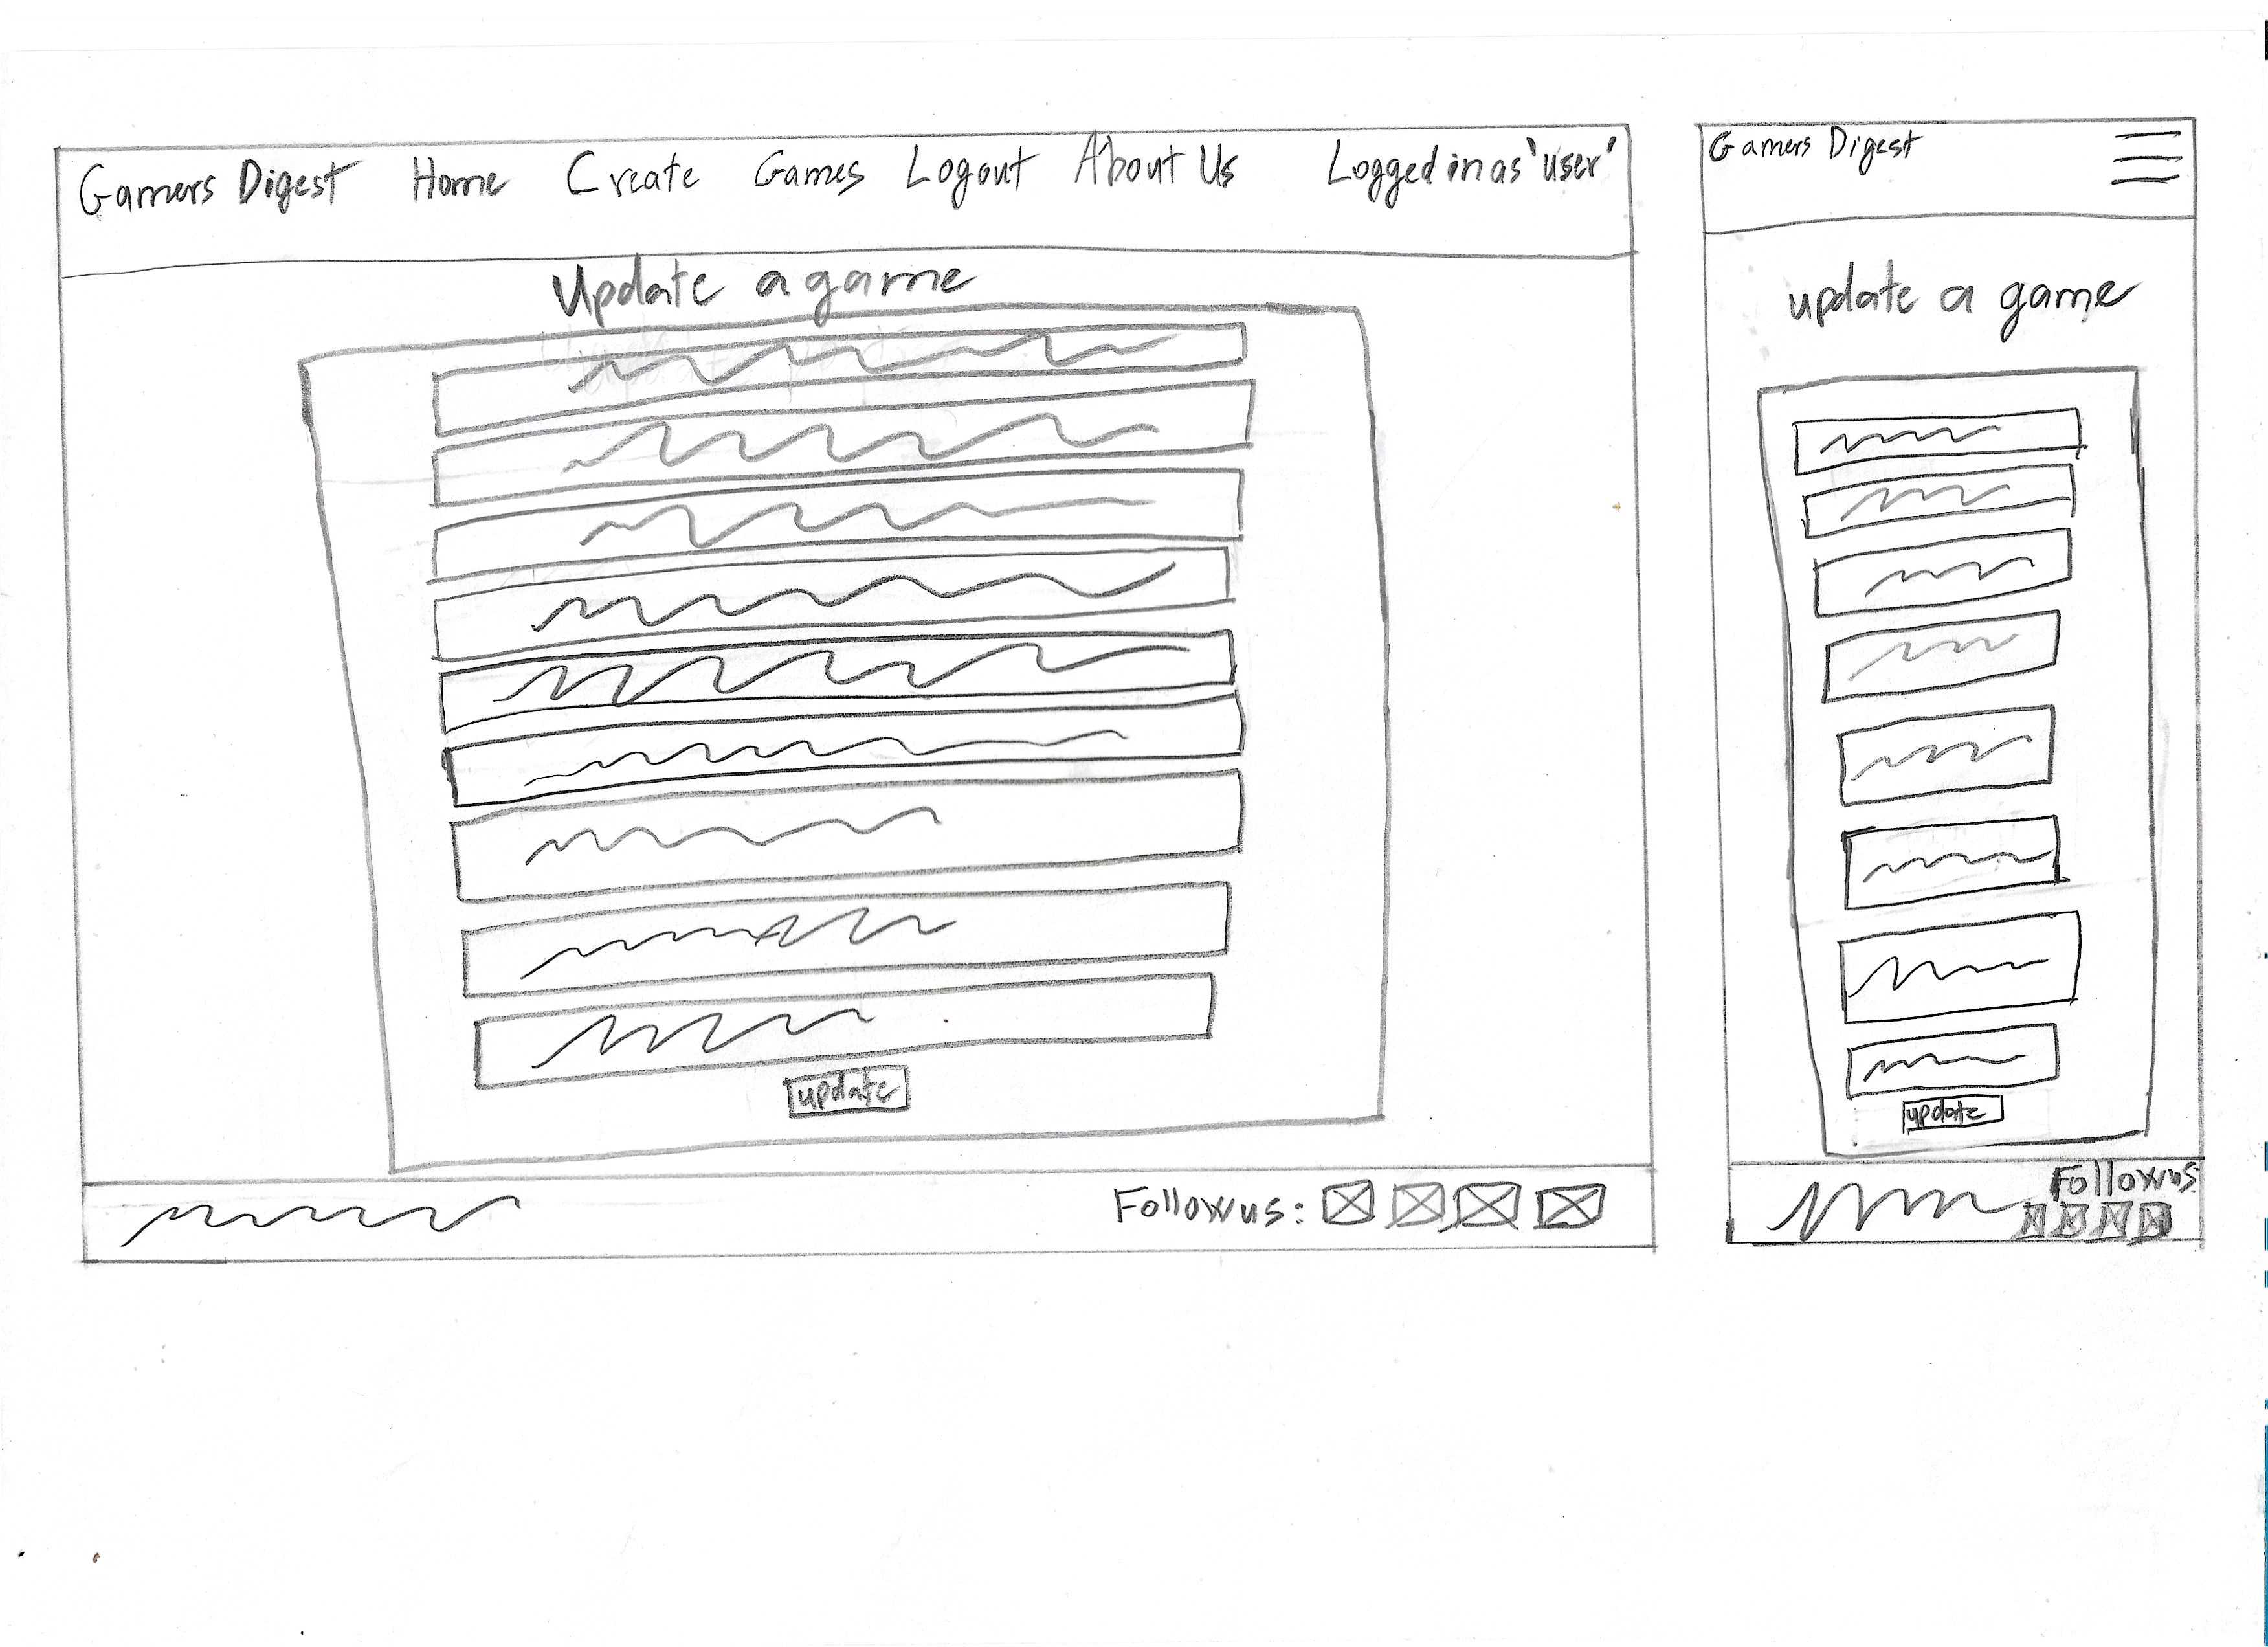 Gamers Digest Home Create Games Logout About Us Logged in as 'user'
Update a game
update
Follow us:
Gamers Digest
update a game
update
Follow us